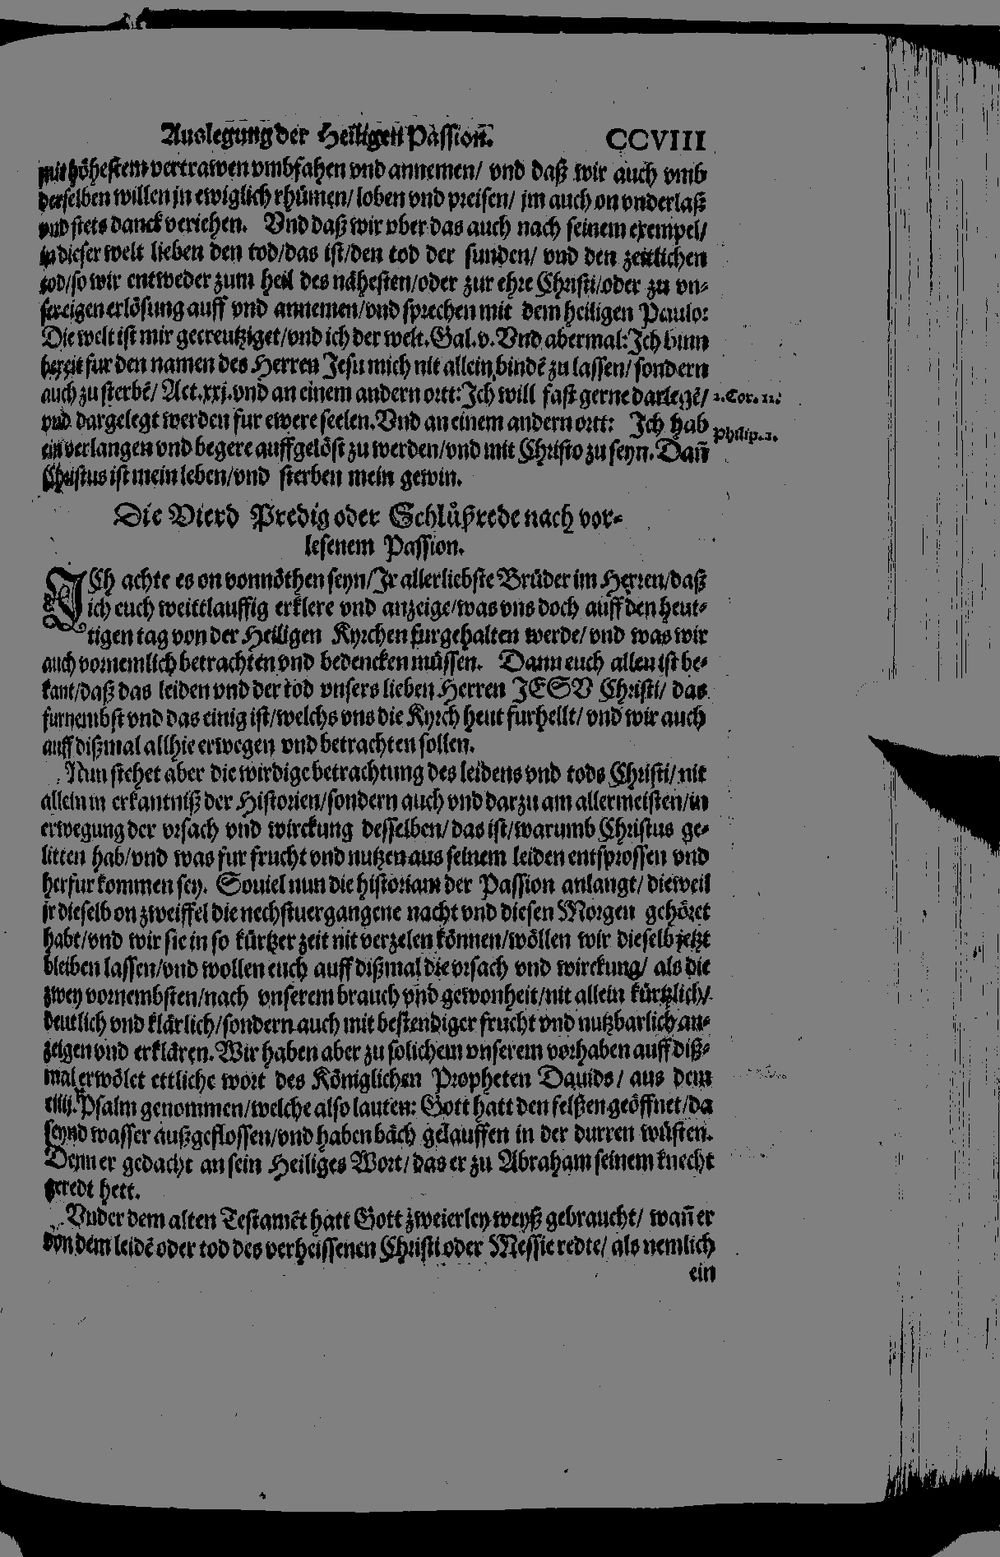 Auslegung der Heiligen Passion. CCVIII
mit höhestem vertrawen vmbfahen vnd annemen/ vnd daß wir auch vmb
derselben willen jn ewiglich rhümen/ loben vnd preisen/ jm auch on vnderlaß
vnd stets danck veriehen. Vnd daß wir vber das auch nach seinem exempel/
in dieser welt lieben den tod/das ist/den tod der sunden/ vnd den zeitlichen
tod/so wir entweder zum heil des nähesten/oder zur ehre Christi/oder zu vn-
ser eigen erlösung auff vnd annemen/vnd sprechen mit dem heiligen Paulo:
Die welt ist mir gecreutziget/vnd ich der welt. Gal. v. Vnd abermal: Ich binn
bereit fur den namen des Herren Jesu mich nit allein bindē zu lassen/ sondern
auch zu sterbē/ Act. xxj. vnd an einem andern ortt: Ich will fast gerne darlegē/
2. Cor. 12.
vnd dargelegt werden fur ewere seelen. Vnd an einem andern ortt: Ich hab
Philip. 1.
ein verlangen vnd begere auffgelöst zu werden/vnd mit Christo zu seyn. Dañ
Christus ist mein leben/vnd sterben mein gewin.
Die Vierd Predig oder Schlůßrede nach vor-
lesenem Passion.
ICh achte es on vonnöthen seyn/Jr allerliebste Brüder im Herren/daß
ich euch weittlauffig erklere vnd anzeige/was vns doch auff den heut-
tigen tag von der Heiligen Kyrchen furgehalten werde/ vnd was wir
auch vornemlich betrachten vnd bedencken müssen. Dann euch allen ist be-
kant/daß das leiden vnd der tod vnsers lieben Herren JESV Christi/ das
furnembst vnd das einig ist/welchs vns die Kyrch heut furhellt/ vnd wir auch
auff dißmal allhie erwegen vnd betrachten sollen.
Nun stehet aber die wirdige betrachtung des leidens vnd tods Christi/ nit
allein in erkantniß der Historien/sondern auch vnd darzu am allermeisten/in
erwegung der vrsach vnd wirckung desselben/das ist/warumb Christus ge-
litten hab/vnd was fur frucht vnd nutzen aus seinem leiden entsprossen vnd
herfur kommen sey. Souiel nun die historiam der Passion anlangt/ dieweil
jr dieselb on zweiffel die nechstuergangene nacht vnd diesen Morgen gehöret
habt/vnd wir sie in so kürtzer zeit nit verzelen können/wöllen wir dieselb jetzt
bleiben lassen/vnd wollen euch auff dißmal die vrsach vnd wirckung/ als die
zwey vornembsten/nach vnserem brauch vnd gewonheit/nit allein kürtzlich/
deutlich vnd klärlich/sondern auch mit bestendiger frucht vnd nutzbarlich an-
zeigen vnd erklären. Wir haben aber zu solichem vnserem vorhaben auff diß-
mal erwölet ettliche wort des Königlichen Propheten Dauids/ aus dem
ciiij. Psalm genommen/welche also lauten: Gott hatt den felßen geöffnet/da
seynd wasser außgeflossen/vnd haben bäch gelauffen in der durren wüsten.
Denn er gedacht an sein Heiliges Wort/das er zu Abraham seinem knecht
geredt hett.
Vnder dem alten Testamēt hatt Gott zweierley weyß gebraucht/ wañ er
von dem leidē oder tod des verheissenen Christi oder Messie redte/ als nemlich
ein